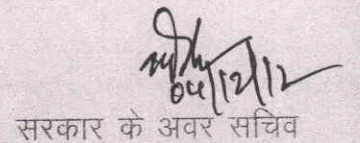 04/12/12
सरकार के अवर सचिव